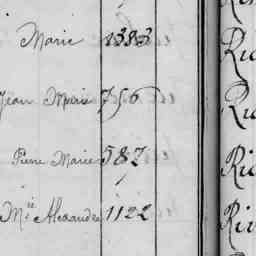 Marie 1383
Jean Marie 756
Pierre Marie 587
Mie Alexandre 1122